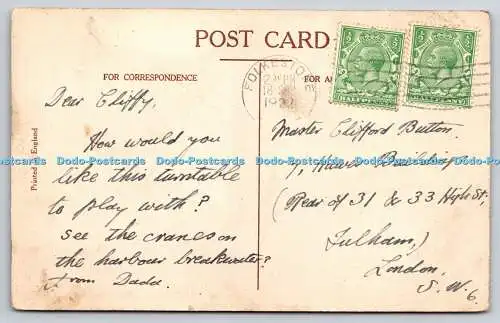 POST CARD
FOR CORRESPONDENCE
FOR A
FOLKESTONE
HALFPENNY
HALFPENNY
Printed in England
Dear Cliffy,
How would you
like this turntable
to play with?
See the cranes on
the harbour breakwater?
From Dada.
Master Clifford Button.
7, Hawes Buildings
(Rear of 31 & 33 High St,
Fulham,)
London,
S.W. 6.
Dodo-Postcards Dodo-Postcards Dodo-Postcards Dodo-Postcards Dodo-Postcards